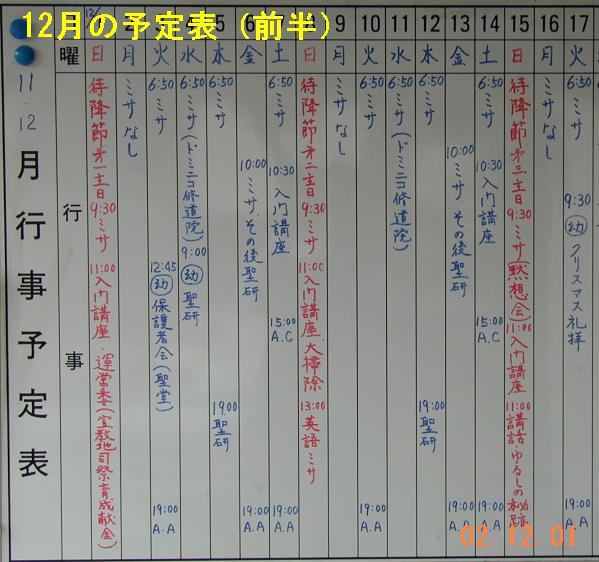 12月の予定表（前半）
11・12月行事予定表
曜 行事
12/
日 待降節第一主日 9:30 ミサ 11:00 入門講座・運営委(宣教地司祭育成献金)
月 ミサなし
火 6:50 ミサ 12:45 幼 保護者会(聖堂) 19:00 A.A
4 水 6:50 ミサ(ドミニコ修道院) 9:00 幼 聖研
5 木 6:50 ミサ 19:00 聖研
6 金 10:00 ミサ その後聖研 19:00 A.A
7 土 6:50 ミサ 10:30 入門講座 15:00 A.C 19:00 A.A
8 日 待降節第二主日 9:30 ミサ 11:00 入門講座 大掃除 13:00 英語ミサ
9 月 ミサなし
10 火 6:50 ミサ 19:00 A.A
11 水 6:50 ミサ(ドミニコ修道院)
12 木 6:50 ミサ 19:00 聖研
13 金 10:00 ミサ その後聖研 19:00 A.A
14 土 6:50 ミサ 10:30 入門講座 15:00 A.C 19:00 A.A
15 日 待降節第三主日 9:30 ミサ(黙想会) 11:00 入門講座 11:00 講話 ゆるしの秘跡
16 月 ミサなし
17 火 6:50 ミサ 9:30 幼 クリスマス礼拝 19:00 A.A
02.12.01